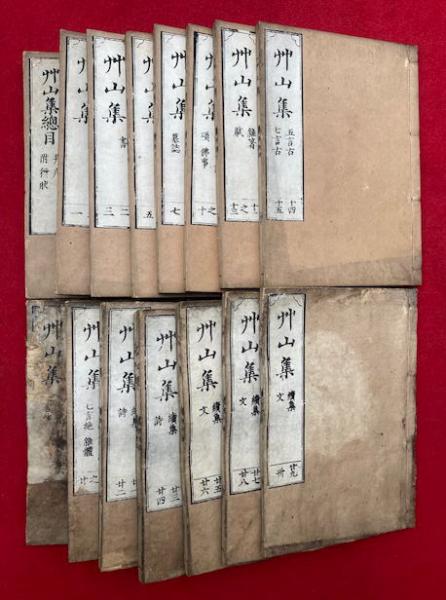 艸山集
五言古
七言古
十四
十五
艸山集
雜著
賦
十二
之
十三
艸山集
頌 佛事
之
十
艸山集
墓誌
七
艸山集
五
艸山集
書
二
三
艸山集
一
艸山集總目
附行狀
艸山集
續集
文
廿九
卅
艸山集
續集
文
廿七
廿八
艸山集
續集
文
廿五
廿六
艸山集
續集
詩
廿三
廿四
艸山集
詩
廿二
艸山集
七言絶 雜體
之
廿
艸山集